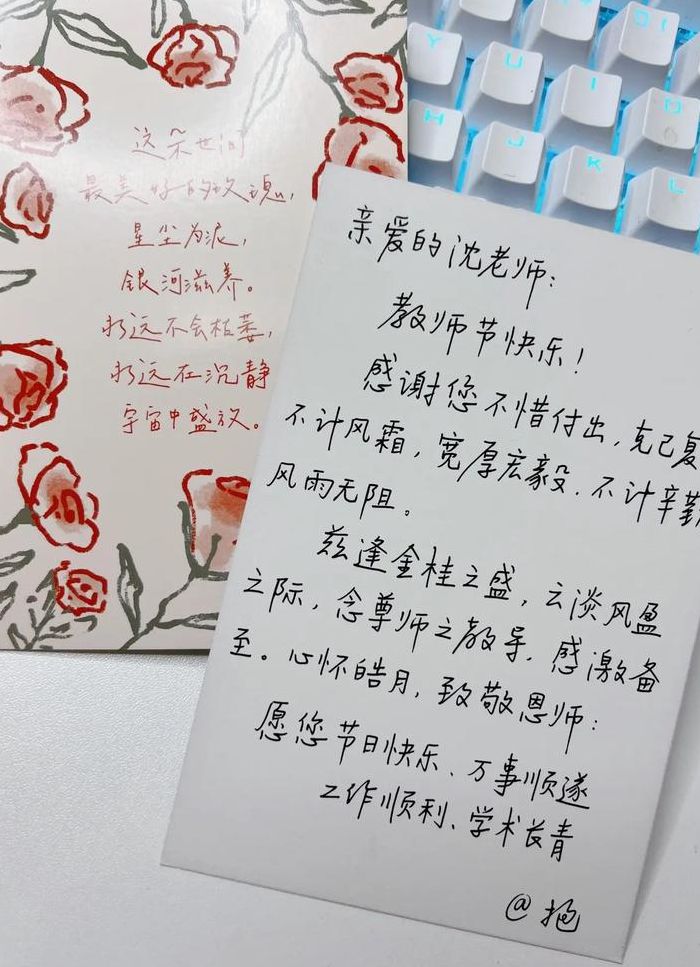 这朵世间
最美好的玫瑰，
星尘为泥，
银河滋养。
永远不会枯萎，
永远在沉静
宇宙中盛放。
亲爱的沈老师：
教师节快乐！
感谢您不惜付出，克己复
不计风霜，宽厚宏毅．不计辛勤
风雨无阻。
兹逢金桂之盛，云淡风盈
之际，念尊师之教导，感激备
至。心怀皓月，致敬恩师：
愿您节日快乐、万事顺遂
工作顺利、学术长青
@
Y U I O
H J K L